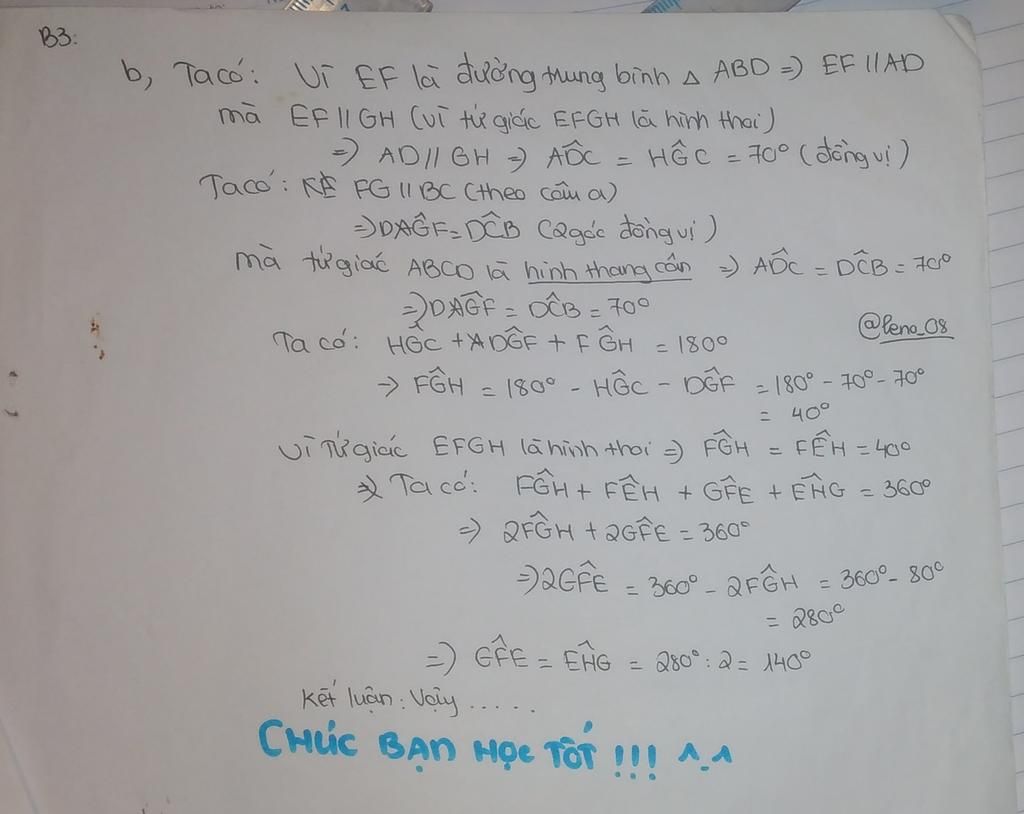 B3:
b, Ta có: Vì EF là đường trung bình △ ABD => EF // AD
mà EF // GH (vì tứ giác EFGH là hình thoi)
=> AD // GH => AD̂C = HĜC = 70° (đồng vị)
Ta có: FG // BC (theo câu a)
=> DĜF = DĈB (2 góc đồng vị)
mà tứ giác ABCD là hình thang cân => AD̂C = DĈB = 70°
=> DĜF = DĈB = 70°
@lena_08
Ta có: HĜC + DĜF + FĜH = 180°
=> FĜH = 180° - HĜC - DĜF = 180° - 70° - 70°
= 40°
Vì Tứ giác EFGH là hình thoi => FĜH = FÊH = 40°
=> Ta có: FĜH + FÊH + GF̂E + EĤG = 360°
=> 2FĜH + 2GF̂E = 360°
=> 2GF̂E = 360° - 2FĜH = 360° - 80°
= 280°
=> GF̂E = EĤG = 280° : 2 = 140°
Kết luận: Vậy .....
CHÚC BẠN HỌC TỐT !!! ^.^